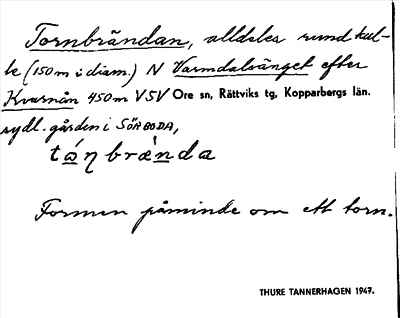 Tornbrändan, alldeles rund kul-
le (150 m i diam.) N Varmdalsänget efter
Kvarnån 450 m VSV Ore sn, Rättviks tg, Kopparbergs län.
sydl. gården i SÖRBODA,
táŋbrènda
Formen påminde om ett torn.
THURE TANNERHAGEN 1947.